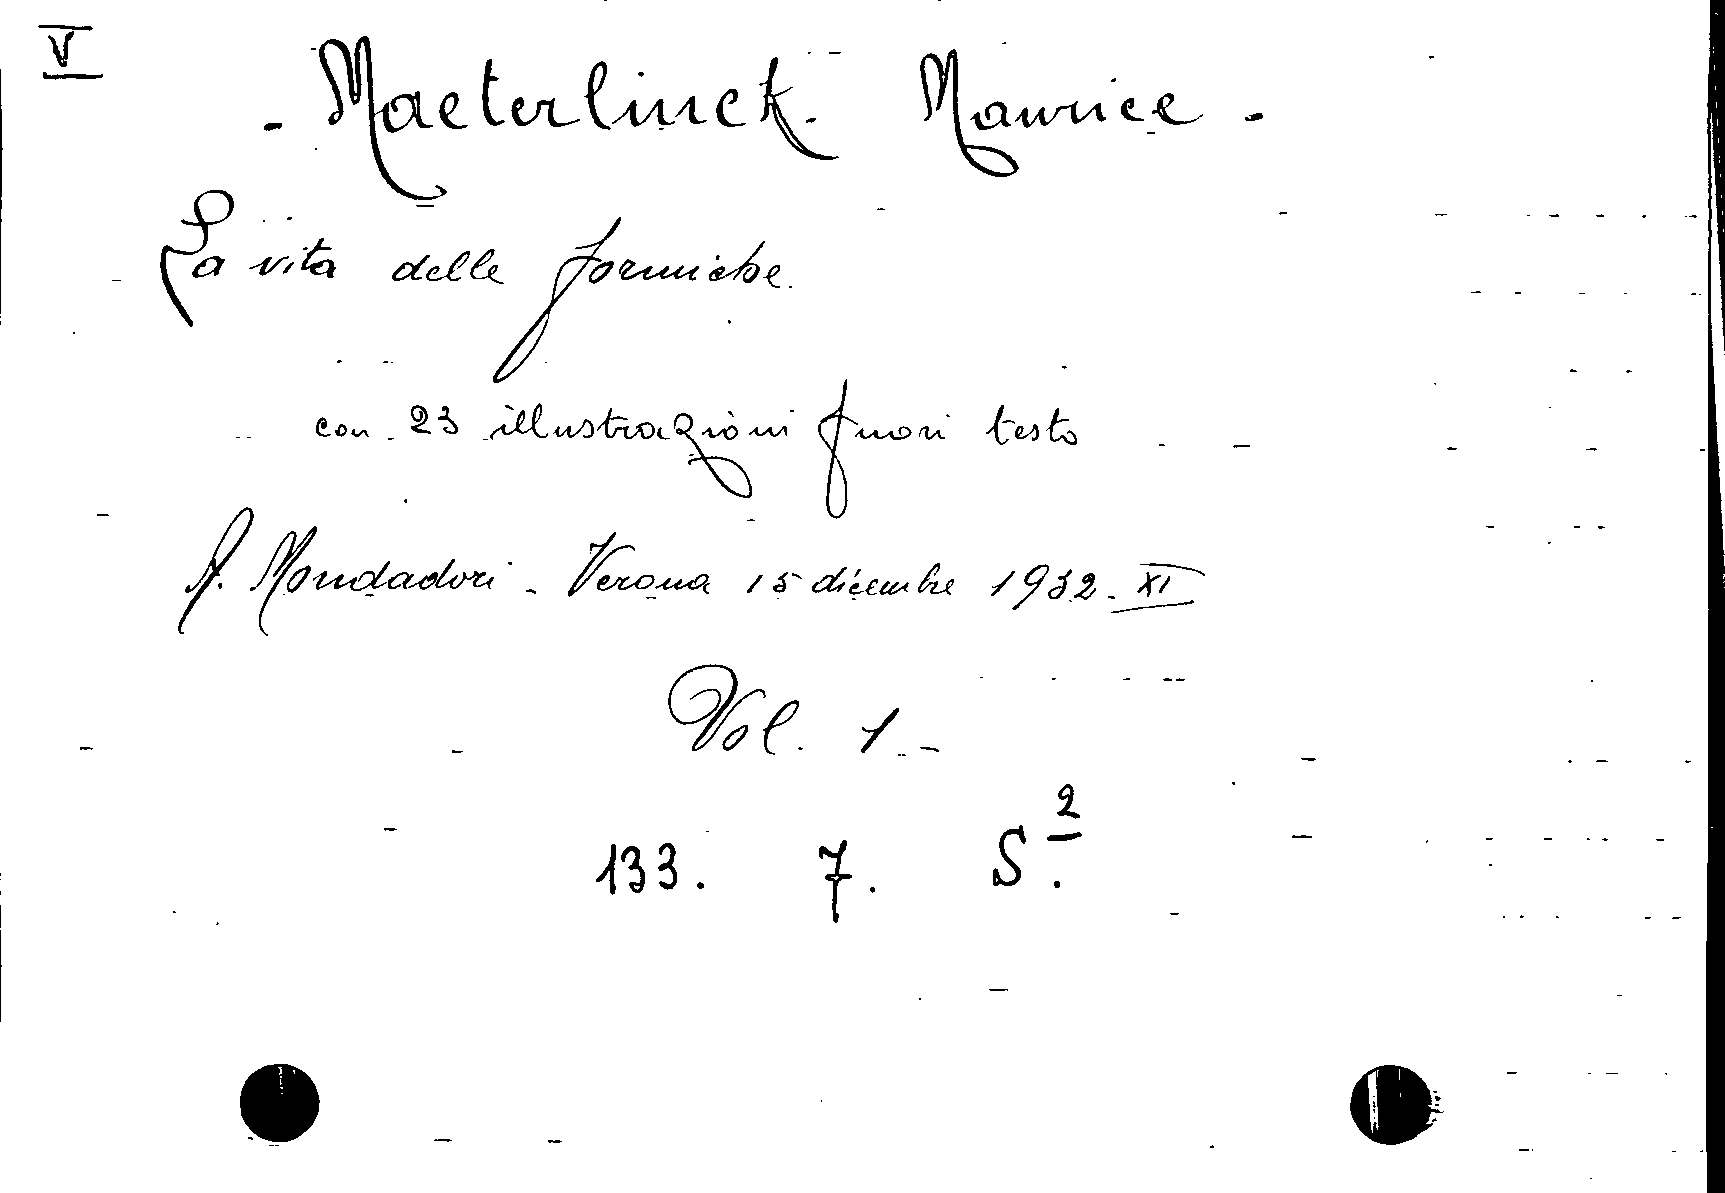 V
- Maeterlinck Maurice -
La vita delle formiche.
con 23 illustrazioni fuori testo
A. Mondadori - Verona 15 dicembre 1932 - XI
Vol. 1. -
133. 7. S.²